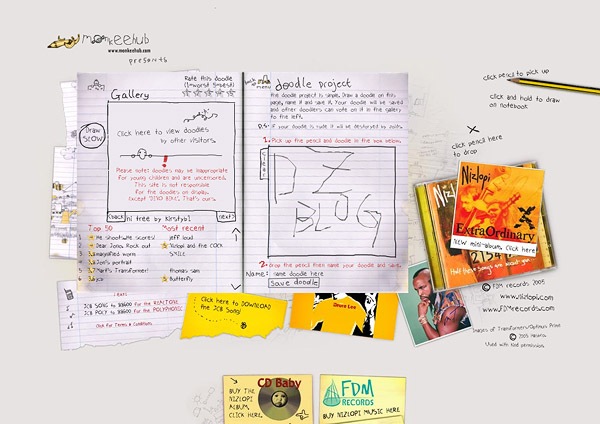 monkeehub
www.monkeehub.com
presents
Gallery
Rate this doodle
(1=worst 5=best)
Draw
Slow
Click here to view doodles
by other visitors.
!
Please note: doodles may be inappropriate
for young children and are uncensored.
This site is not responsible
for the doodles on display.
Except 'DEMO BIKE'. That's ours.
<back
hi tree by kirstyb1
next>
Top 50
Most recent
1
2
3
4
5
6
jeff loud
Dear Jono, Rock out
SMILE
Jon's portrait
Mark's Transformer!
thomas sam
Butterfly
JCB SONG to
for the REALTONE
JCB POLY to
for the POLYPHONIC
Click for Terms & Conditions
Click here to DOWNLOAD
the JCB Song!
Bruce Lee
back to
menu
doodle project
the doodle project is simple. Draw a doodle on this
page, name it and save it. Your doodle will be saved
and other doodlers can vote on it in the gallery
to the left.
P.S. if your doodle is rude it will be destroyed by
1. Pick up the pencil and doodle in the box below.
clear
DZ
BLOG
2. drop the pencil then name your doodle and save.
Name: name doodle here
Save doodle
click pencil to pick up
click and hold to draw
on notebook
x
click pencil here
to drop
Nizlopi
Nizlopi
ExtraOrdinary
NEW mini-album, Click here!
Half these songs are about you
© FDM records 2005
www.nizlopi.com
www.FDMrecords.com
Images of Transformers/Optimus Prime
© 2005 Hasbro.
Used with kind permission.
CD Baby
BUY THE
NIZLOPI
ALBUM,
CLICK HERE.
FDM
RECORDS
BUY NIZLOPI MUSIC HERE